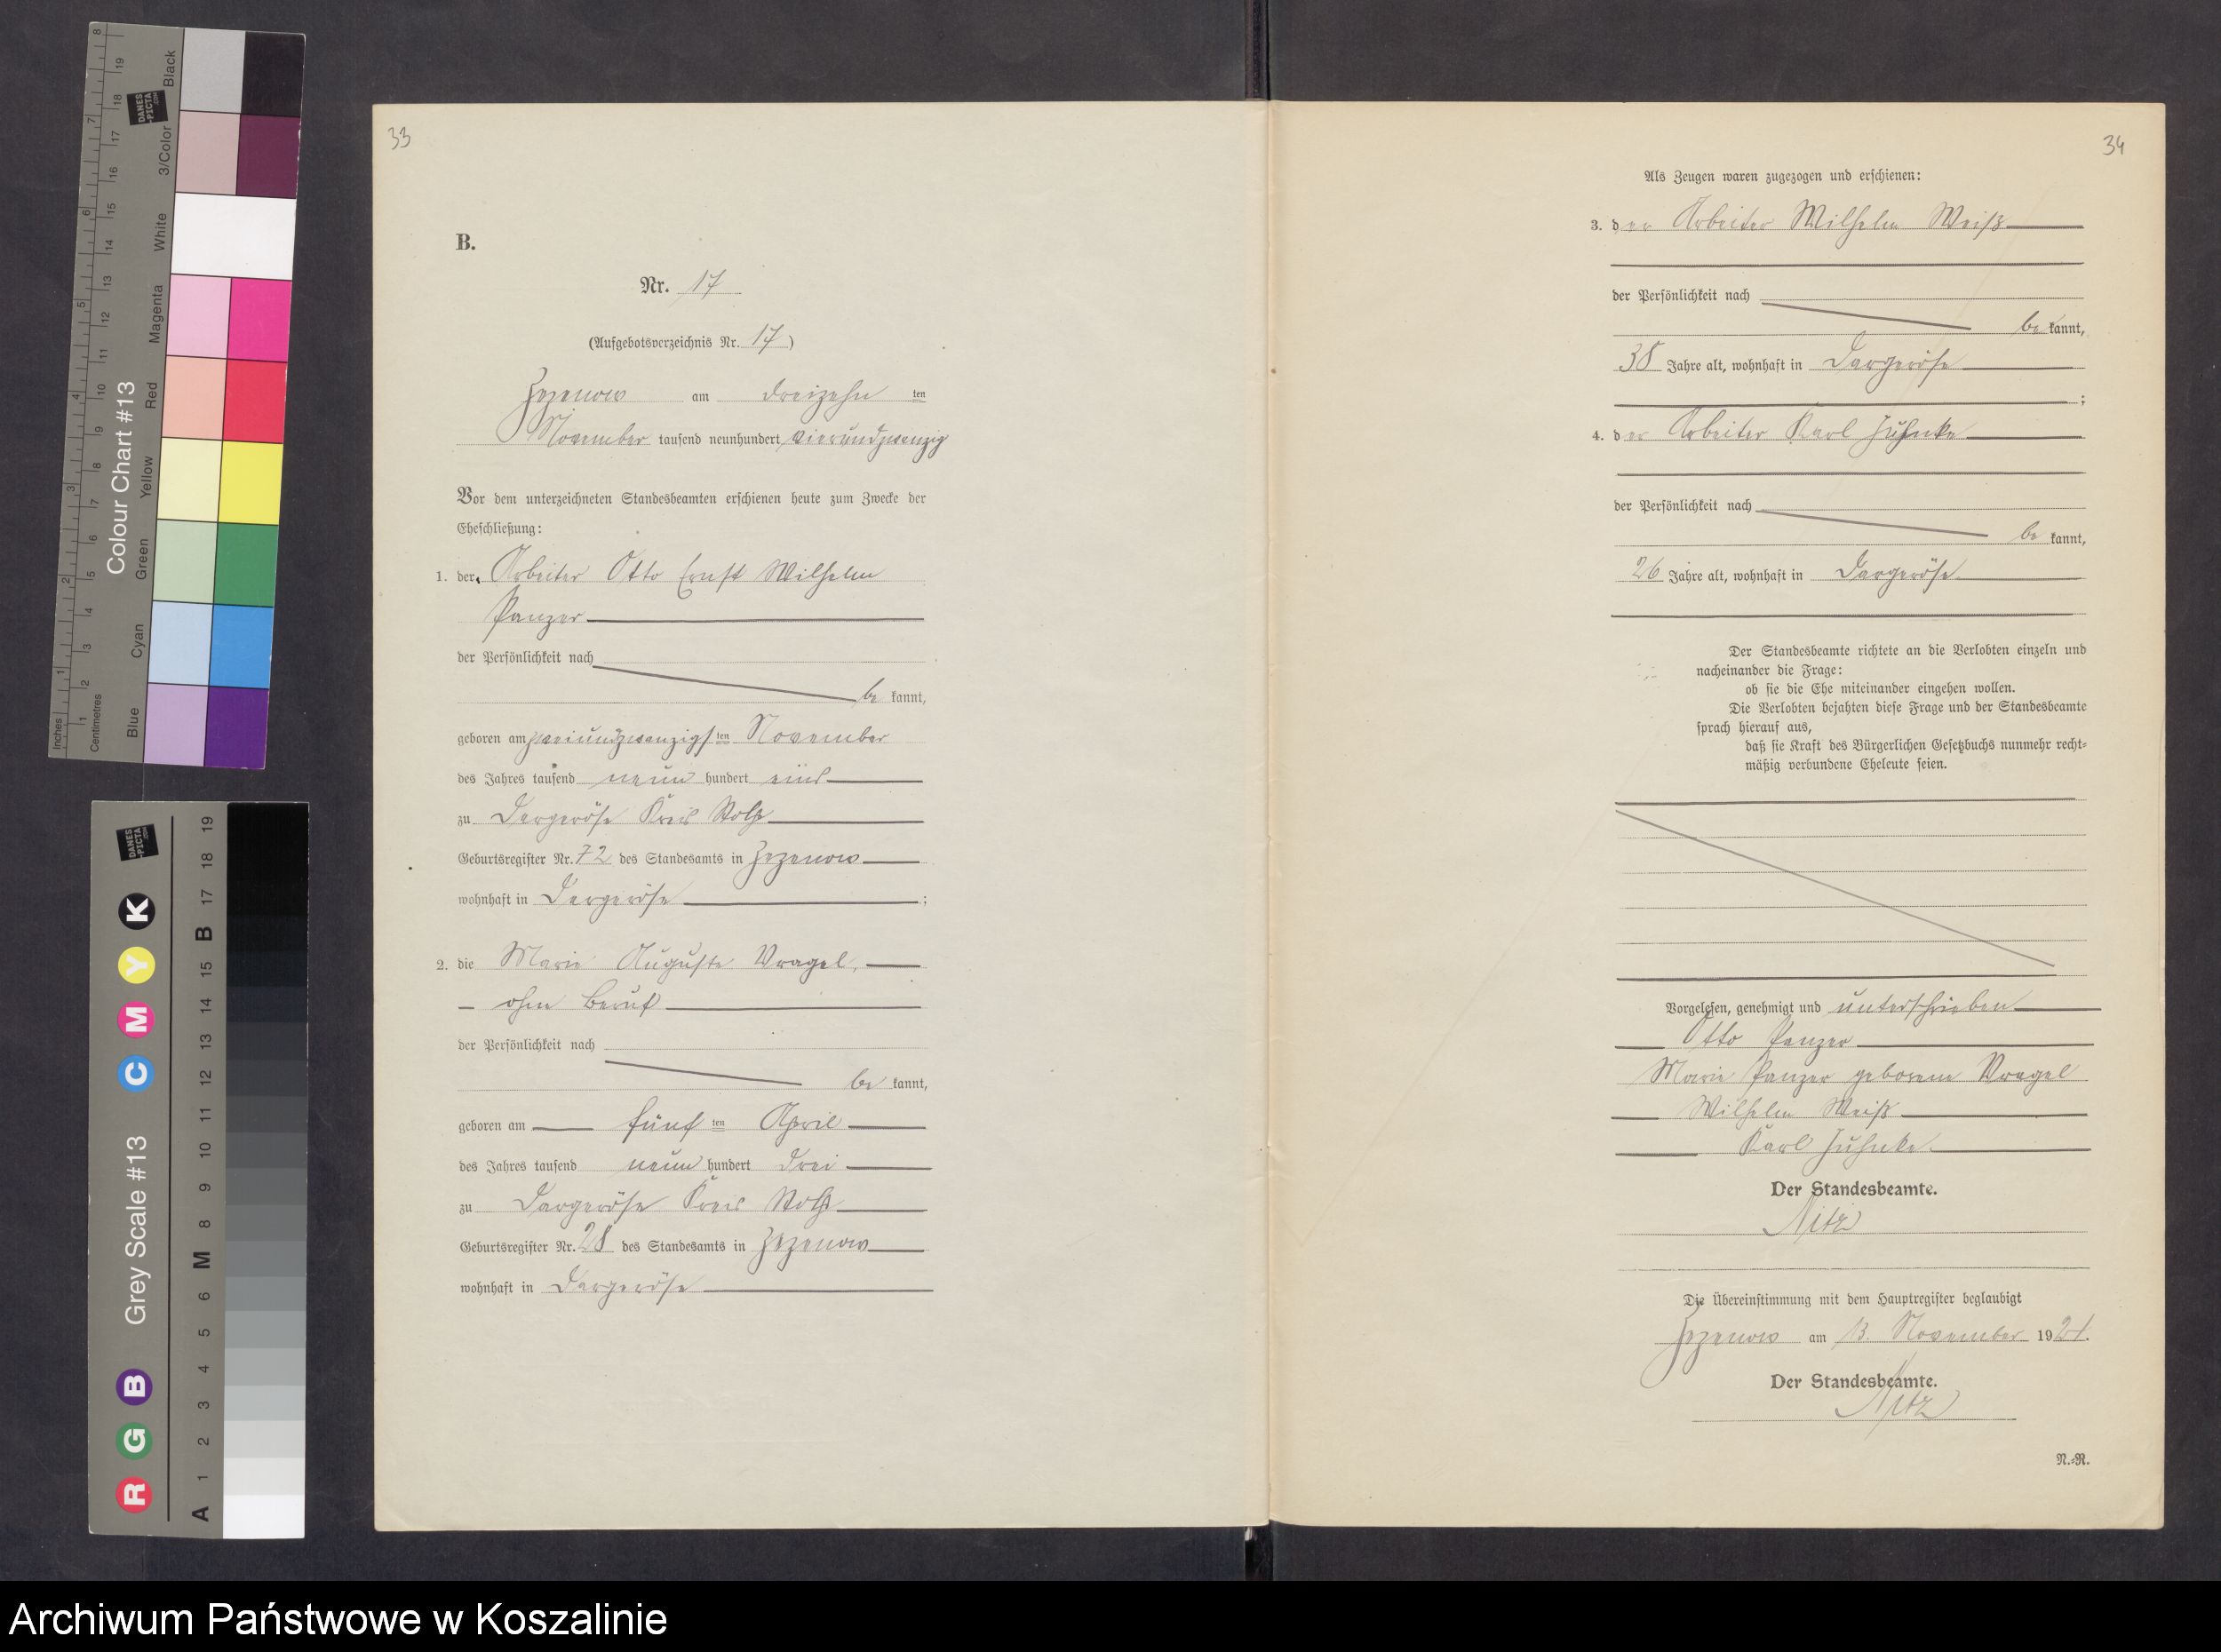 33
B.
Nr. 17
(Aufgebotsverzeichnis Nr. 17)
Zezenow am dreizehn ten
November tausend neunhundert vierundzwanzig
Vor dem unterzeichneten Standesbeamten erschienen heute zum Zwecke der
Eheschließung:
1. der Arbeiter Otto Ernst Wilhelm
Panzer
der Persönlichkeit nach
be kannt,
geboren am zweiundzwanzigs ten November
des Jahres tausend neun hundert eins
zu Dargeröse Kreis Stolp
Geburtsregister Nr. 72 des Standesamts in Zezenow
wohnhaft in Dargeröse ;
2. die Marie Auguste Vragel,
ohne Beruf
der Persönlichkeit nach
be kannt,
geboren am fünf ten April
des Jahres tausend neun hundert drei
zu Dargeröse Kreis Stolp
Geburtsregister Nr. 28 des Standesamts in Zezenow
wohnhaft in Dargeröse
34
Als Zeugen waren zugezogen und erschienen:
3. der Arbeiter Wilhelm Weiß
der Persönlichkeit nach
be kannt,
38 Jahre alt, wohnhaft in Dargeröse
;
4. der Arbeiter Karl Juhnke
der Persönlichkeit nach
be kannt,
26 Jahre alt, wohnhaft in Dargeröse
Der Standesbeamte richtete an die Verlobten einzeln und
nacheinander die Frage:
ob sie die Ehe miteinander eingehen wollen.
Die Verlobten bejahten diese Frage und der Standesbeamte
sprach hierauf aus,
daß sie Kraft des Bürgerlichen Gesetzbuchs nunmehr recht-
mäßig verbundene Eheleute seien.
Vorgelesen, genehmigt und unterschrieben
Otto Panzer
Marie Panzer geborene Vragel
Wilhelm Weiß
Karl Juhnke
Der Standesbeamte.
Nitz
Die Übereinstimmung mit dem Hauptregister beglaubigt
Zezenow am 13. November 1924.
Der Standesbeamte.
Nitz
N.-R.
Colour Chart #13
Blue Cyan Green Yellow Red Magenta White 3/Color Black
Inches 1 2 3 4 5 6 7 8
Centimetres 1 2 3 4 5 6 7 8 9 10 11 12 13 14 15 16 17 18 19
DANES
-PICTA
.COM
R G B Grey Scale #13 C M Y K
A 1 2 3 4 5 6 M 8 9 10 11 12 13 14 15 B 17 18 19
DANES
-PICTA
.COM
Archiwum Państwowe w Koszalinie